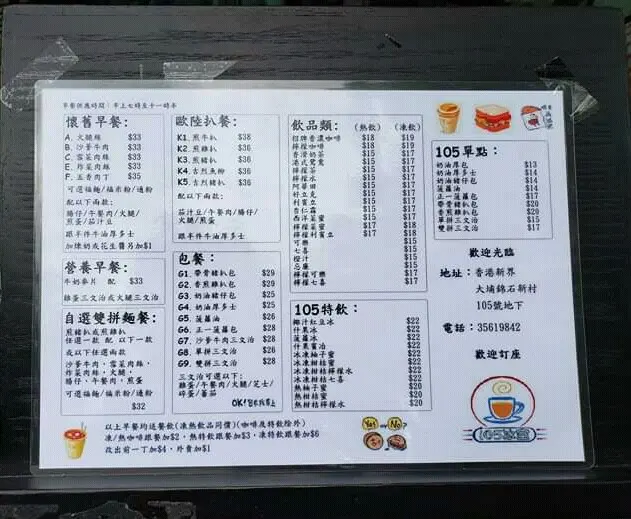 早餐供應時間：早上七時至十一時半
懷舊早餐：
A. 火腿絲 $33
B. 沙爹牛肉 $33
C. 雪菜肉絲 $33
E. 炸菜肉絲 $33
F. 五香肉丁 $35
可選福麵/福米粉/通粉
配以下兩款：
腸仔/午餐肉/火腿/
煎蛋/茄汁豆
跟半件牛油厚多士
加煉奶或花生醬另加$1
營養早餐：
牛奶麥片 配 $33
雞蛋三文治或火腿三文治
自選雙拼麵餐：
煎豬扒或煎雞扒
任選一款 配 以下一款
或以下任選兩款
沙爹牛肉，雪菜肉絲，
炸菜肉絲，火腿，
腸仔，午餐肉，煎蛋
可選福麵/福米粉/通粉
$32
歐陸扒餐：
K1. 煎牛扒 $38
K2. 煎雞扒 $36
K3. 煎豬扒 $36
K4. 吉列魚柳 $36
K5. 吉列豬扒 $36
配以下兩款：
茄汁豆/午餐肉/腸仔/
火腿/煎蛋
跟半件牛油厚多士
包餐：
G1. 帶骨豬扒包 $29
G2. 香煎雞扒包 $29
G3. 奶油豬仔包 $25
G4. 奶油厚多士 $25
G5. 菠蘿油 $26
G6. 正一菠蘿包 $28
G7. 沙爹牛肉三文治 $28
G8. 單拼三文治 $26
G9. 雙拼三文治 $28
三文治可選以下：
雞蛋/午餐肉/火腿/芝士/
碎蛋/蕃茄
OK!
飲品類： (熱飲) (凍飲)
招牌香濃咖啡 $18 $19
檸檬咖啡 $18 $19
香滑奶茶 $15 $17
港式鴛鴦 $15 $17
檸檬茶 $15 $17
檸檬水 $15 $17
阿華田 $15 $17
好立克 $15 $17
利賓立 $15 $17
杏仁霜 $15 $17
西洋菜蜜 $15 $17
檸檬菜蜜 $17 $18
檸檬利賓立 $17 $18
可樂 $15
七喜 $15
橙汁 $15
忌廉 $15
檸檬可樂 $17
檸檬七喜 $17
105特飲：
椰汁紅豆冰 $22
什果冰 $22
菠蘿冰 $22
什果賓冶 $22
冰凍柚子蜜 $22
冰凍柑桔蜜 $22
冰凍柑桔七喜 $22
熱柚子蜜 $20
熱柑桔蜜 $20
熱柑桔檸檬水 $20
105單點：
奶油厚包 $13
奶油厚多士 $14
奶油豬仔包 $14
菠蘿油 $14
正一菠蘿包 $17
帶骨豬扒包 $20
香煎雞扒包 $20
單拼三文治 $15
雙拼三文治 $17
歡迎光臨
地址：香港新界
大埔錦石新村
105號地下
電話：35619842
歡迎訂座
105冰室
以上早餐均送餐飲(凍熱飲品同價)(咖啡及特飲除外)
凍/熱咖啡跟餐加$2，熱特飲跟餐加$3，凍特飲跟餐加$6
改出前一丁加$4，外賣加$1
Yes or No?